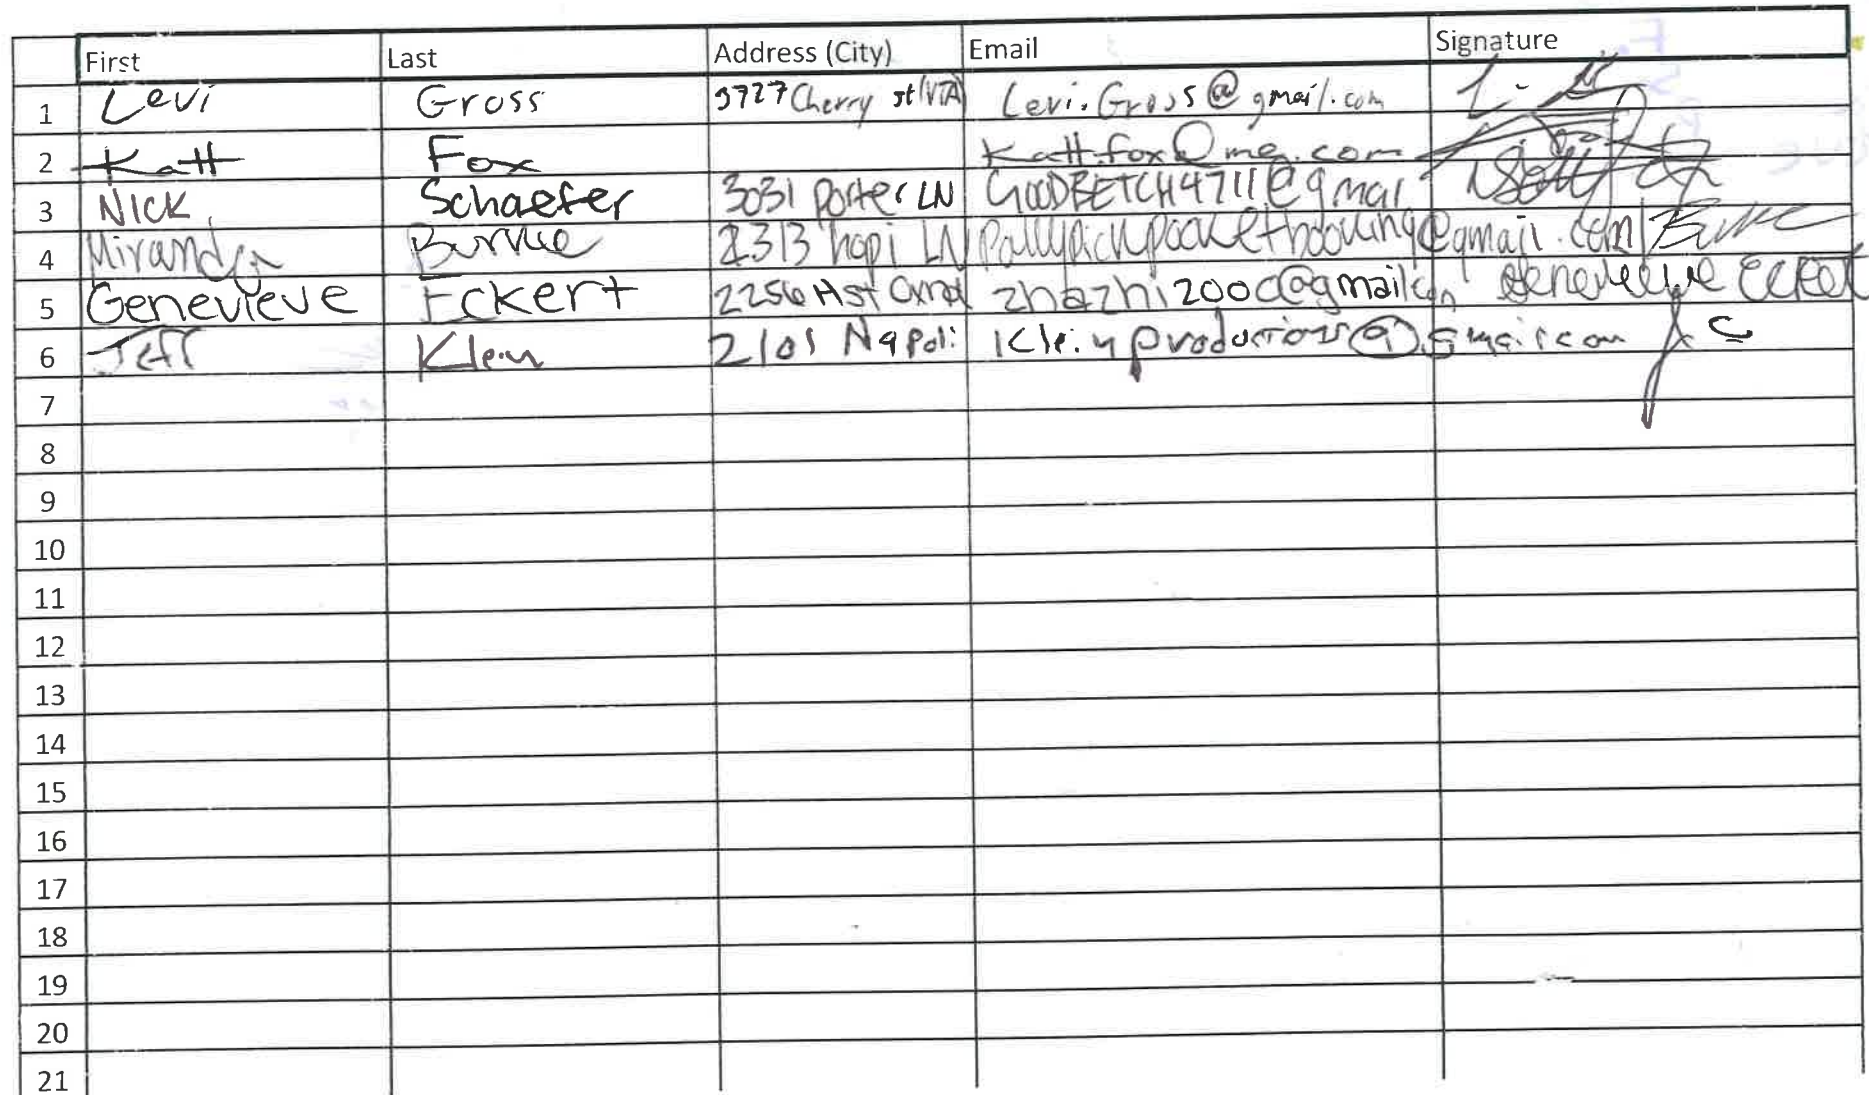 First Last Address (City) Email Signature
1 Levi Gross 3727 Cherry st (VTA) Levi.Gross@gmail.com
2 Katt Fox Katt.fox@me.com
3 NICK Schaefer 3031 Porter LN GOODBETCH4711@gmai
4 Miranda Burke 2313 hopi LN @gmail.com Burke
5 Genevieve Eckert 2256 Hst zhazhi2000@gmail Genevieve Eckert
6 Jeff Klein 2101 Napoli Kleinproductions@gmail.com
7
8
9
10
11
12
13
14
15
16
17
18
19
20
21